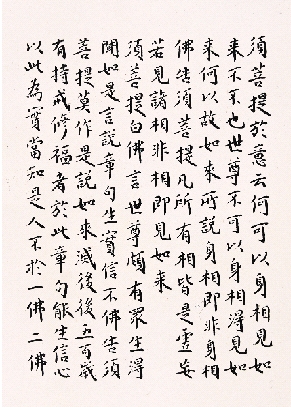 須菩提於意云何可以身相見如
来不不也世尊不可以身相得見如
来何以故如来所説身相即非身相
佛告須菩提凡所有相皆是虚妄
若見諸相非相即見如来
須菩提白佛言世尊頗有眾生得
聞如是言説章句生實信不佛告須
菩提莫作是説如来滅後後五百歲
有持戒修福者於此章句能生信心
以此為實當知是人不於一佛二佛